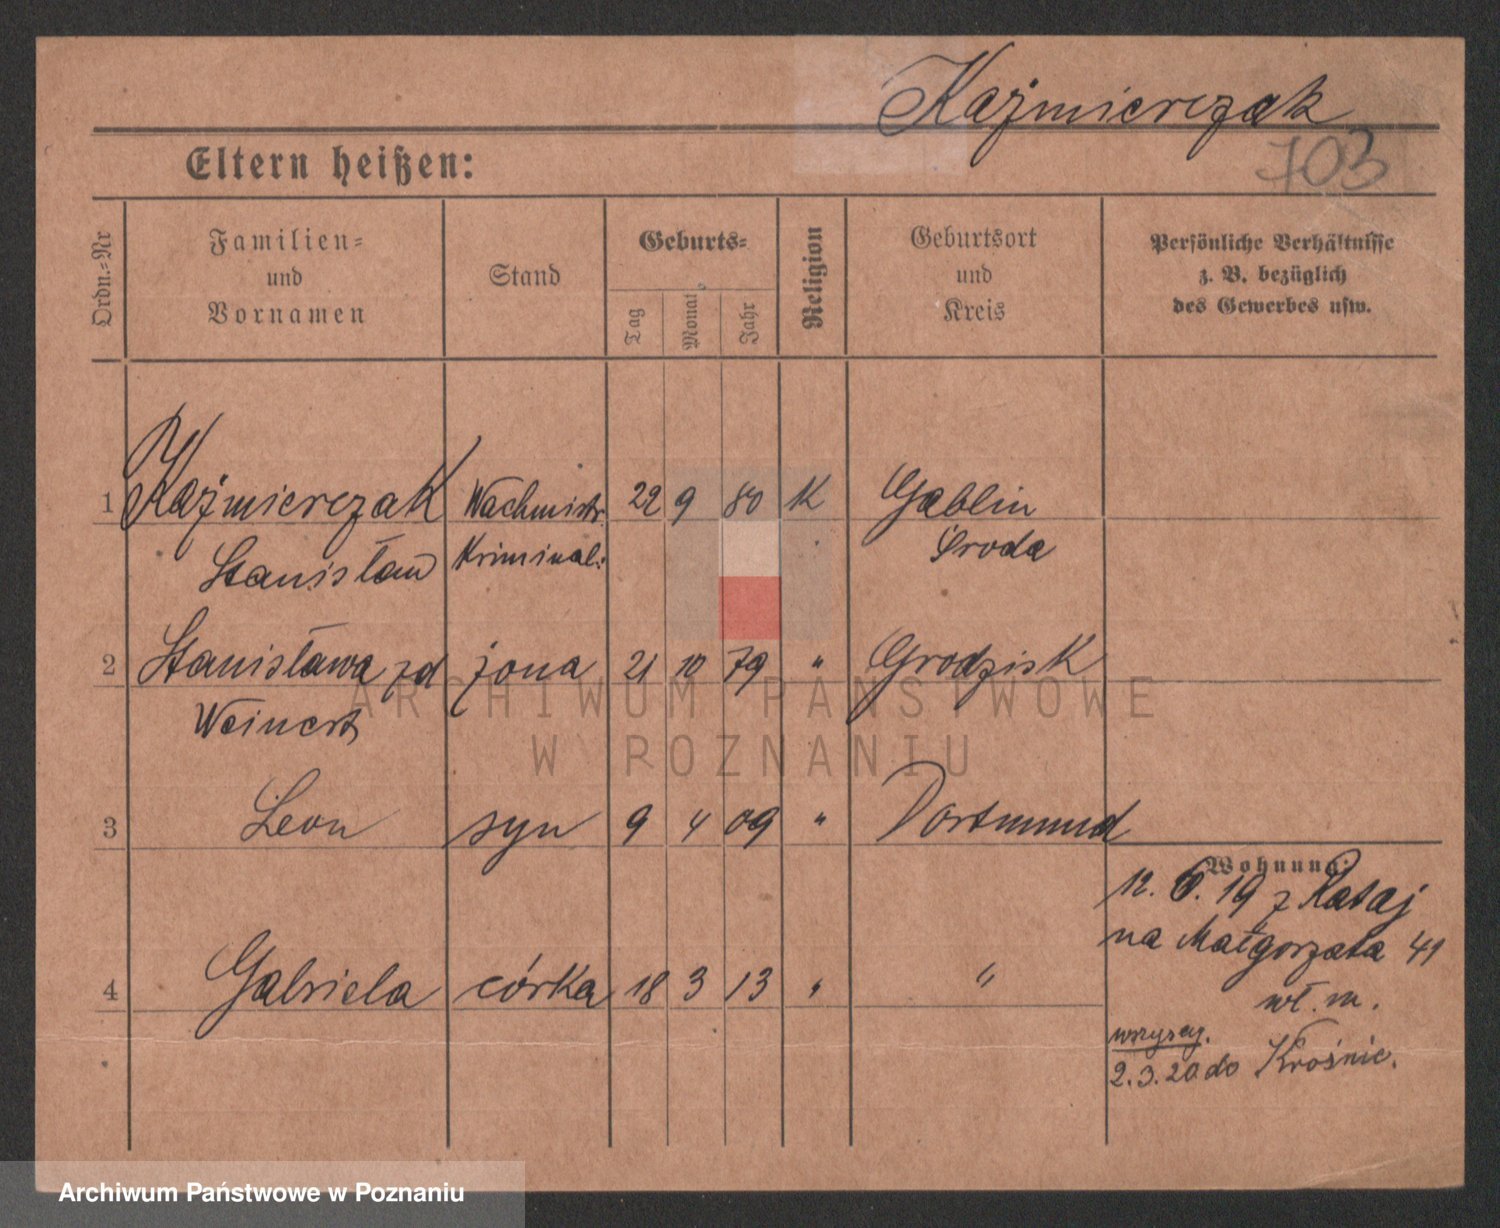 Kaźmierczak
703
Eltern heißen:
Ordn.=Nr
Familien=
und
Vornamen
Stand
Geburts=
Tag
Monat
Jahr
Religion
Geburtsort
und
Kreis
Persönliche Verhältnisse
z. B. bezüglich
des Gewerbes usw.
1 Kaźmierczak Wachmistr. 22 9 80 K Gablin
Stanisław Kriminal: Środa
2 Stanisława zd żona 21 10 79 " Grodzisk
Weinert
3 Leon syn 9 4 09 " Dortmund
Wohnung:
12. 6. 19 z Rataj
na Małgorzata 41
4 Gabriela córka 18 3 13 " "
wł. m.
wszyscy.
2.3.20 do Krośnie.
ARCHIWUM PAŃSTWOWE
W POZNANIU
Archiwum Państwowe w Poznaniu